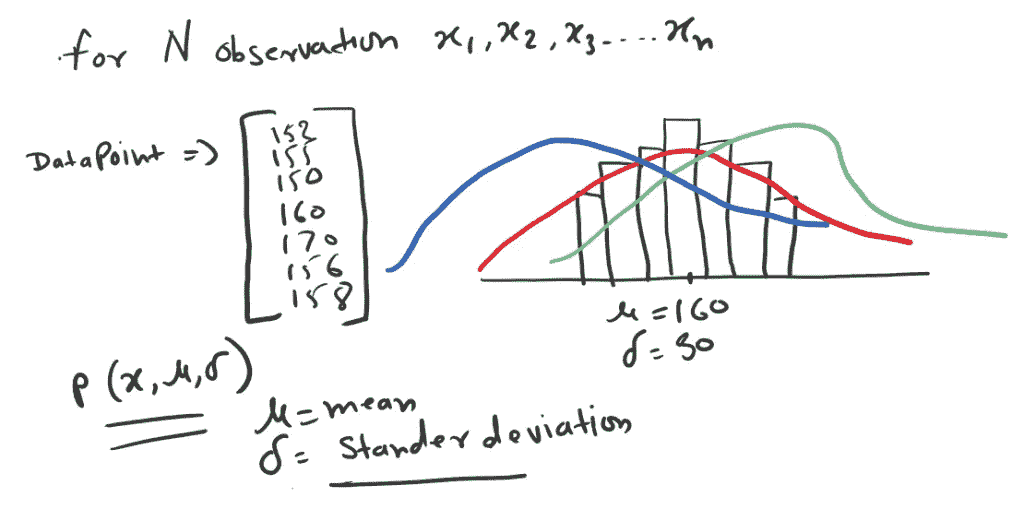 for N observation x1, x2, x3.....xn
DataPoint =>
152
155
150
160
170
156
158
μ = 160
σ = 30
P (x, μ, σ)
μ = mean
σ = Stander deviation